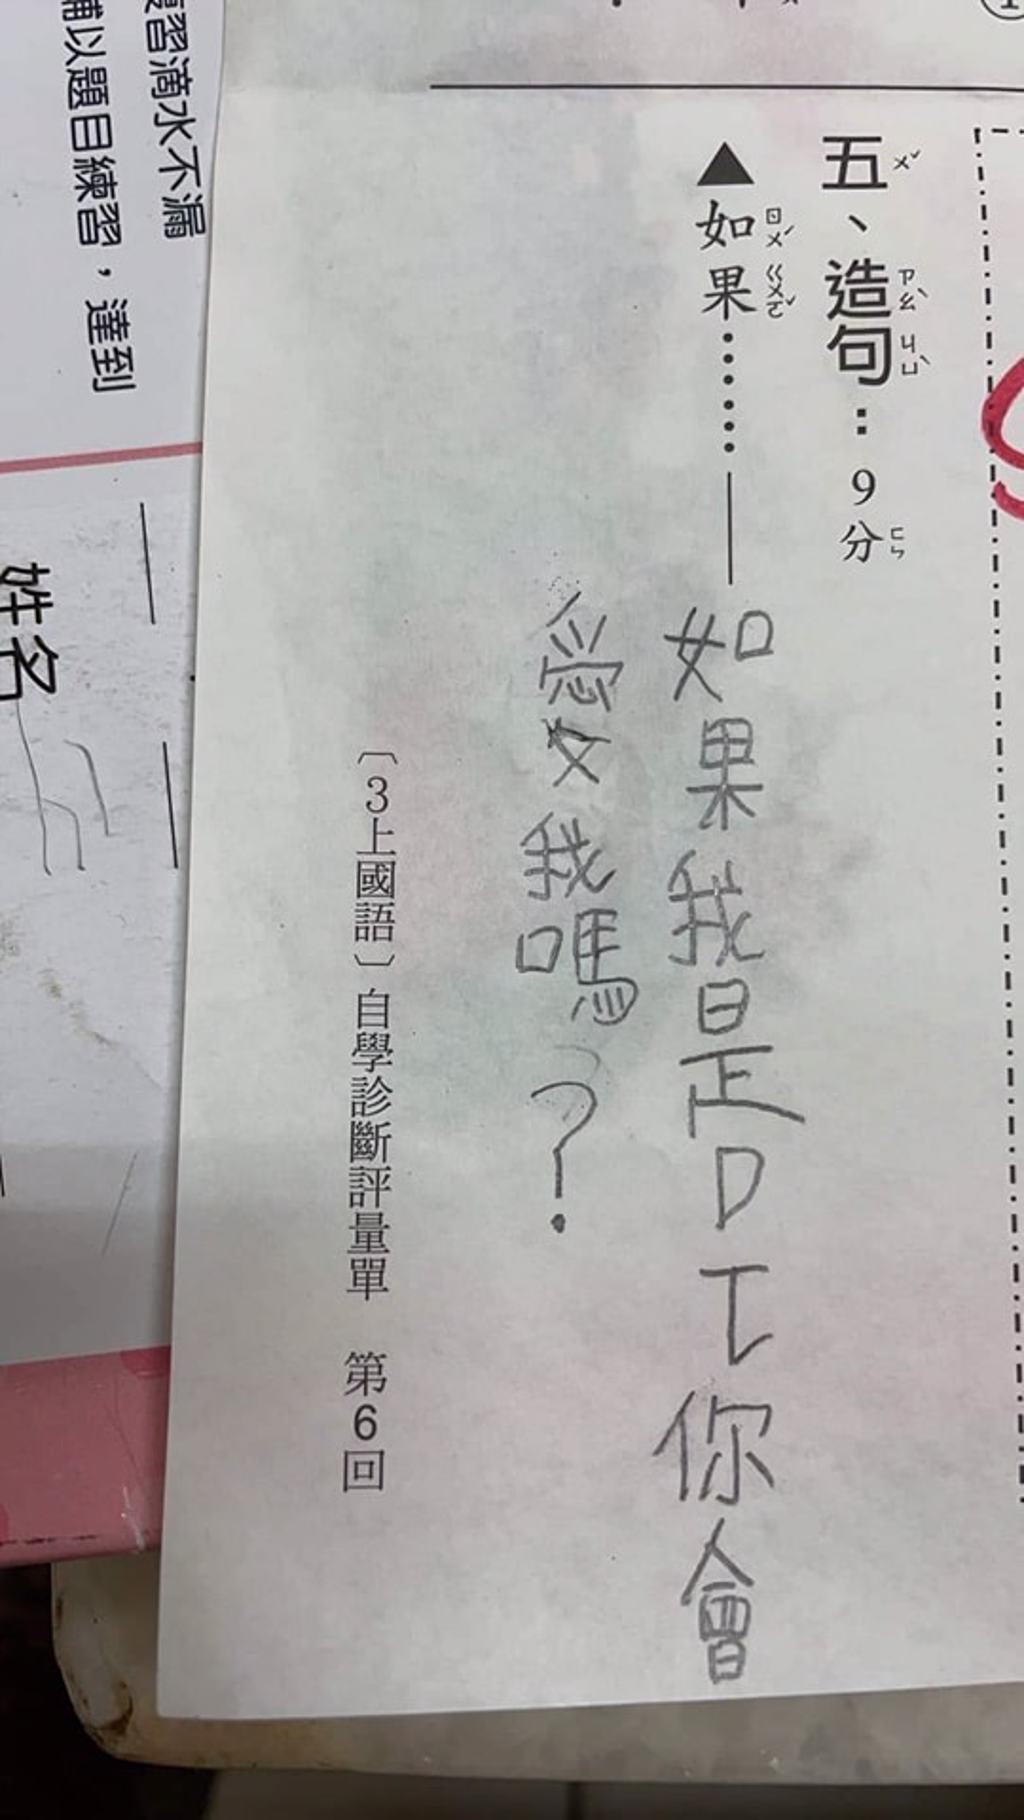 五、造句：9分
ㄨˇ ㄗㄠˋ ㄐㄩˋ ㄈㄣ
▲如果……
ㄖㄨˊ ㄍㄨㄛˇ
如果我是DT你會
愛我嗎？
〔3上國語〕自學診斷評量單 第6回
習滴水不漏
補以題目練習，達到
姓名